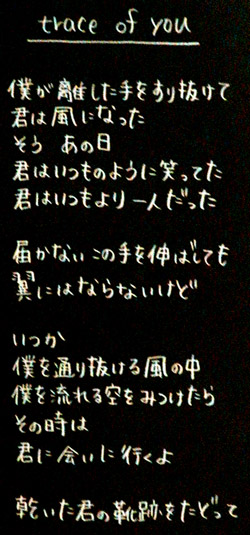 trace of you
僕が離した手をすり抜けて
君は風になった
そう あの日
君はいつものように笑ってた
君はいつもより一人だった
届かないこの手を伸ばしても
翼にはならないけど
いつか
僕を通り抜ける風の中
僕を流れる空をみつけたら
その時は
君に会いに行くよ
乾いた君の靴跡をたどって